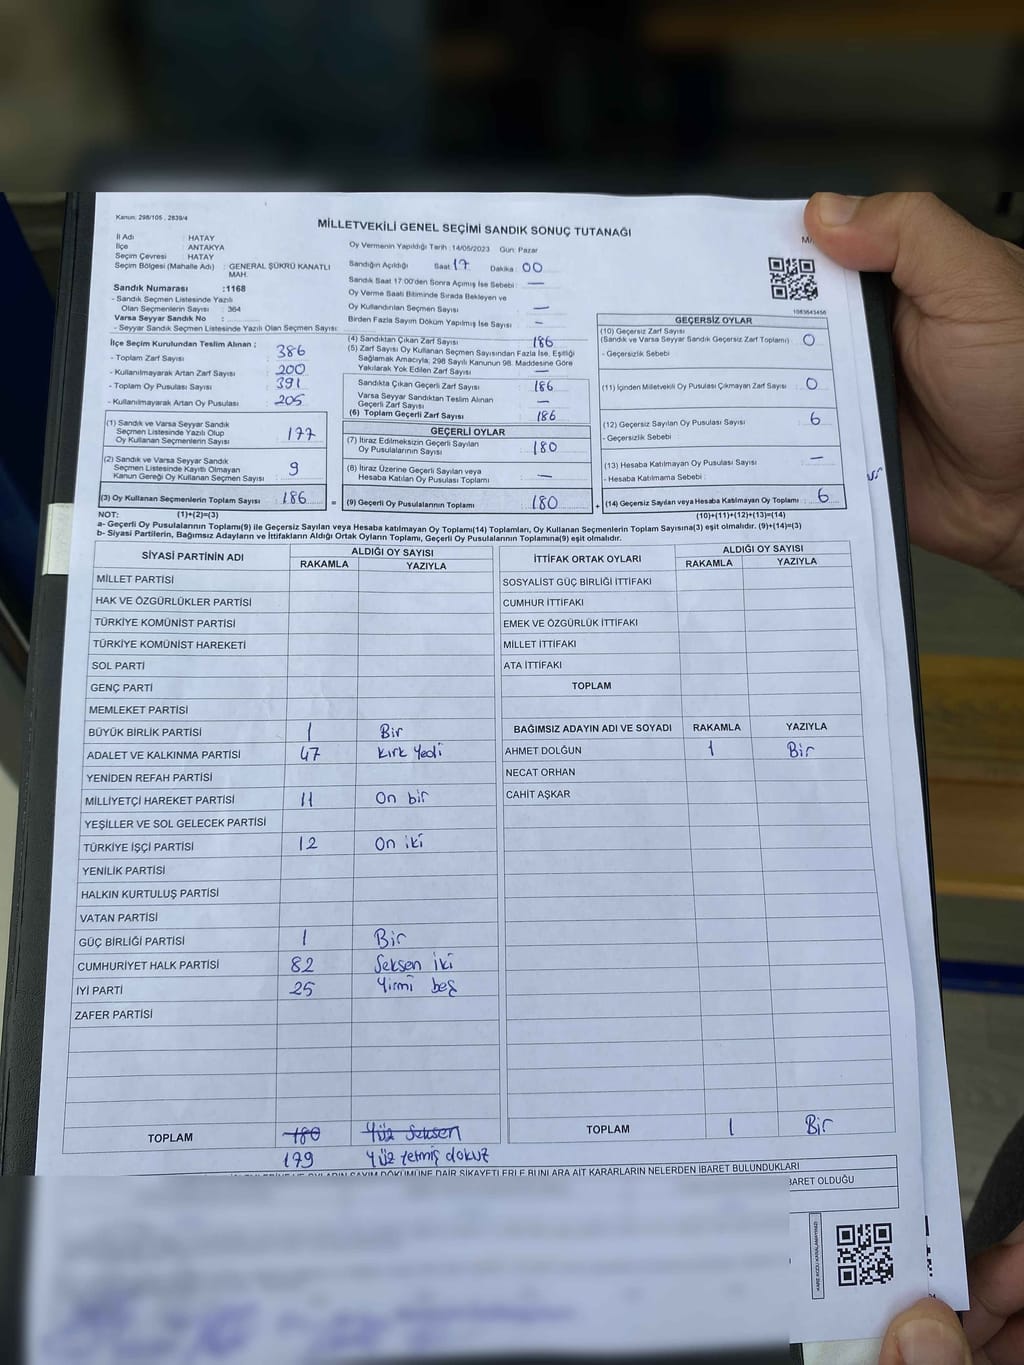 Kanun: 298/105 , 2839/4
MİLLETVEKİLİ GENEL SEÇİMİ SANDIK SONUÇ TUTANAĞI
İl Adı : HATAY
İlçe : ANTAKYA
Seçim Çevresi : HATAY
Seçim Bölgesi (Mahalle Adı) : GENERAL ŞÜKRÜ KANATLI MAH.
Sandık Numarası :1168
- Sandık Seçmen Listesinde Yazılı
Olan Seçmenlerin Sayısı : 364
Varsa Seyyar Sandık No :
- Seyyar Sandık Seçmen Listesinde Yazılı Olan Seçmen Sayısı:
Oy Vermenin Yapıldığı Tarih : 14/05/2023 Gün: Pazar
Sandığın Açıldığı Saat 17 Dakika 00
Sandık Saat 17:00'den Sonra Açımış İse Sebebi : —
Oy Verme Saati Bitiminde Sırada Bekleyen ve
Oy Kullandırılan Seçmen Sayısı —
Birden Fazla Sayım Döküm Yapılmış İse Sayısı : -
1083643456
İlçe Seçim Kurulundan Teslim Alınan ;
- Toplam Zarf Sayısı : 386
- Kullanılmayarak Artan Zarf Sayısı : 200
- Toplam Oy Pusulası Sayısı : 391
- Kullanılmayarak Artan Oy Pusulası : 205
(1) Sandık ve Varsa Seyyar Sandık
Seçmen Listesinde Yazılı Olup
Oy Kullanan Seçmenlerin Sayısı : 177
(2) Sandık ve Varsa Seyyar Sandık
Seçmen Listesinde Kayıtlı Olmayan
Kanun Gereği Oy Kullanan Seçmen Sayısı : 9
(3) Oy Kullanan Seçmenlerin Toplam Sayısı : 186
(1)+(2)=(3)
(4) Sandıktan Çıkan Zarf Sayısı : 186
(5) Zarf Sayısı Oy Kullanan Seçmen Sayısından Fazla İse, Eşitliği
Sağlamak Amacıyla; 298 Sayılı Kanunun 98. Maddesine Göre
Yakılarak Yok Edilen Zarf Sayısı : —
Sandıkta Çıkan Geçerli Zarf Sayısı : 186
Varsa Seyyar Sandıktan Teslim Alınan
Geçerli Zarf Sayısı : —
(6) Toplam Geçerli Zarf Sayısı : 186
GEÇERLİ OYLAR
(7) İtiraz Edilmeksizin Geçerli Sayılan
Oy Pusulalarının Sayısı : 180
(8) İtiraz Üzerine Geçerli Sayılan veya
Hesaba Katılan Oy Pusulası Toplamı : —
= (9) Geçerli Oy Pusulalarının Toplamı : 180
GEÇERSİZ OYLAR
(10) Geçersiz Zarf Sayısı
(Sandık ve Varsa Seyyar Sandık Geçersiz Zarf Toplamı) : 0
- Geçersizlik Sebebi :
(11) İçinden Milletvekili Oy Pusulası Çıkmayan Zarf Sayısı : 0
(12) Geçersiz Sayılan Oy Pusulası Sayısı : 6
- Geçersizlik Sebebi :
(13) Hesaba Katılmayan Oy Pusulası Sayısı : —
- Hesaba Katılmama Sebebi :
+ (14) Geçersiz Sayılan veya Hesaba Katılmayan Oy Toplamı : 6
(10)+(11)+(12)+(13)=(14)
NOT:
a- Geçerli Oy Pusulalarının Toplamı(9) ile Geçersiz Sayılan veya Hesaba katılmayan Oy Toplamı(14) Toplamları, Oy Kullanan Seçmenlerin Toplam Sayısına(3) eşit olmalıdır. (9)+(14)=(3)
b- Siyasi Partilerin, Bağımsız Adayların ve İttifakların Aldığı Ortak Oyların Toplamı, Geçerli Oy Pusulalarının Toplamına(9) eşit olmalıdır.
SİYASİ PARTİNİN ADI ALDIĞI OY SAYISI
RAKAMLA YAZIYLA
MİLLET PARTİSİ
HAK VE ÖZGÜRLÜKLER PARTİSİ
TÜRKİYE KOMÜNİST PARTİSİ
TÜRKİYE KOMÜNİST HAREKETİ
SOL PARTİ
GENÇ PARTİ
MEMLEKET PARTİSİ
BÜYÜK BİRLİK PARTİSİ 1 Bir
ADALET VE KALKINMA PARTİSİ 47 Kırk Yedi
YENİDEN REFAH PARTİSİ
MİLLİYETÇİ HAREKET PARTİSİ 11 On bir
YEŞİLLER VE SOL GELECEK PARTİSİ
TÜRKİYE İŞÇİ PARTİSİ 12 On iki
YENİLİK PARTİSİ
HALKIN KURTULUŞ PARTİSİ
VATAN PARTİSİ
GÜÇ BİRLİĞİ PARTİSİ 1 Bir
CUMHURİYET HALK PARTİSİ 82 Seksen iki
İYİ PARTİ 25 Yirmi beş
ZAFER PARTİSİ
TOPLAM 180 Yüz Seksen
179 Yüz yetmiş dokuz
İTTİFAK ORTAK OYLARI ALDIĞI OY SAYISI
RAKAMLA YAZIYLA
SOSYALİST GÜÇ BİRLİĞİ İTTİFAKI
CUMHUR İTTİFAKI
EMEK VE ÖZGÜRLÜK İTTİFAKI
MİLLET İTTİFAKI
ATA İTTİFAKI
TOPLAM
BAĞIMSIZ ADAYIN ADI VE SOYADI RAKAMLA YAZIYLA
AHMET DOLĞUN 1 Bir
NECAT ORHAN
CAHİT AŞKAR
TOPLAM 1 Bir
SAYIM DÖKÜMÜNE DAİR ŞİKAYETLERLE BUNLARA AİT KARARLARIN NELERDEN İBARET BULUNDUKLARI
BARET OLDUĞU
KARE KODU KARALAMAYINIZ!